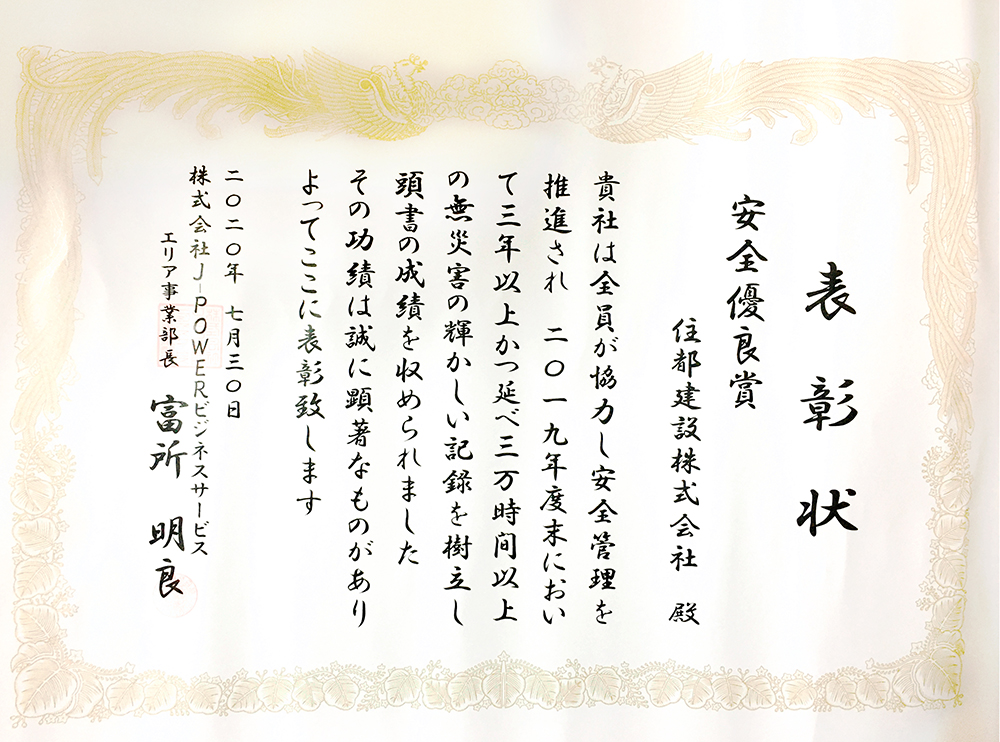 表彰状
安全優良賞
住都建設株式会社 殿
貴社は全員が協力し安全管理を
推進され 二〇一九年度末におい
て三年以上かつ延べ三万時間以上
の無災害の輝かしい記録を樹立し
頭書の成績を収められました
その功績は誠に顕著なものがあり
よってここに表彰致します
二〇二〇年 七月三〇日
株式会社J-POWERビジネスサービス
エリア事業部長 富所 明良